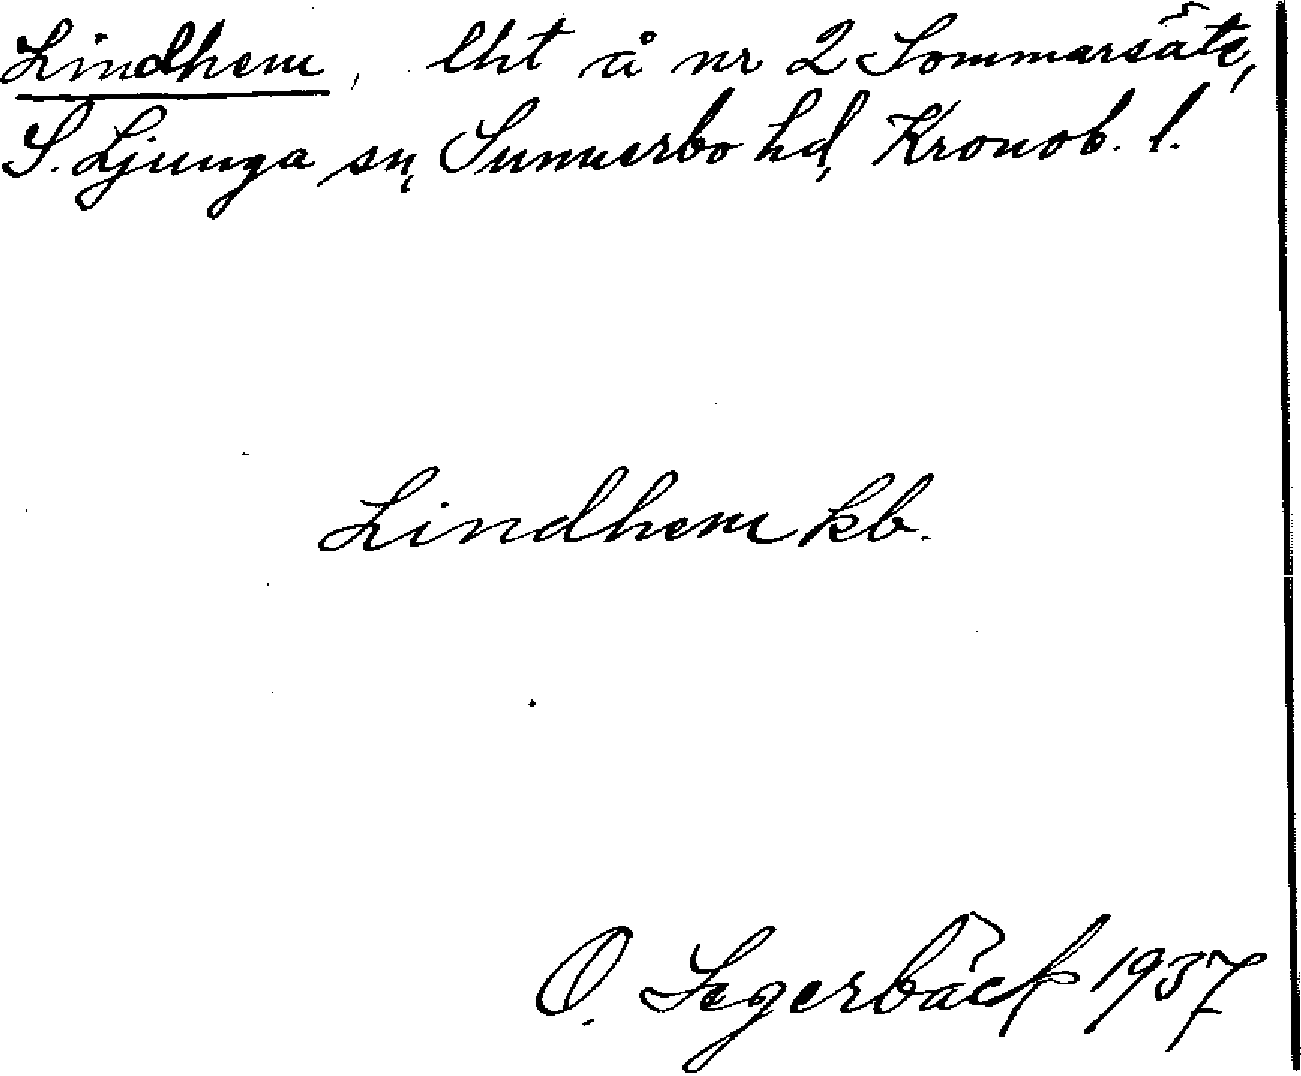 Lindhem, lht å nr 2 Sommarsäte,
S. Ljunga sn, Sunnerbo hd, Kronob. l.
Lindhem kb.
O. Segerbäck 1937